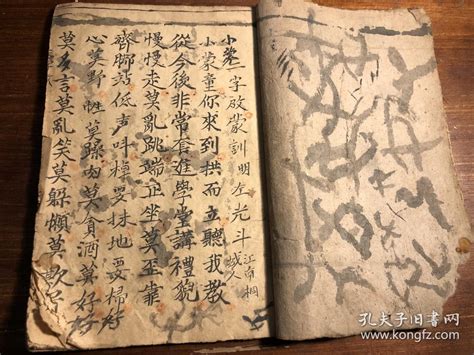 字啟蒙訓明左光斗
江南桐
城人
小蒙童你來到拱而立聽我教
從今後非常套進學堂講禮貌
慢慢走莫亂跳端正坐莫歪靠
齊脚站低声叫棹要抹地要掃
心莫野性莫躁肉莫貪酒莫好
莫多言莫亂笑莫躲懶莫欺
孔夫子旧书网
www.kongfz.com